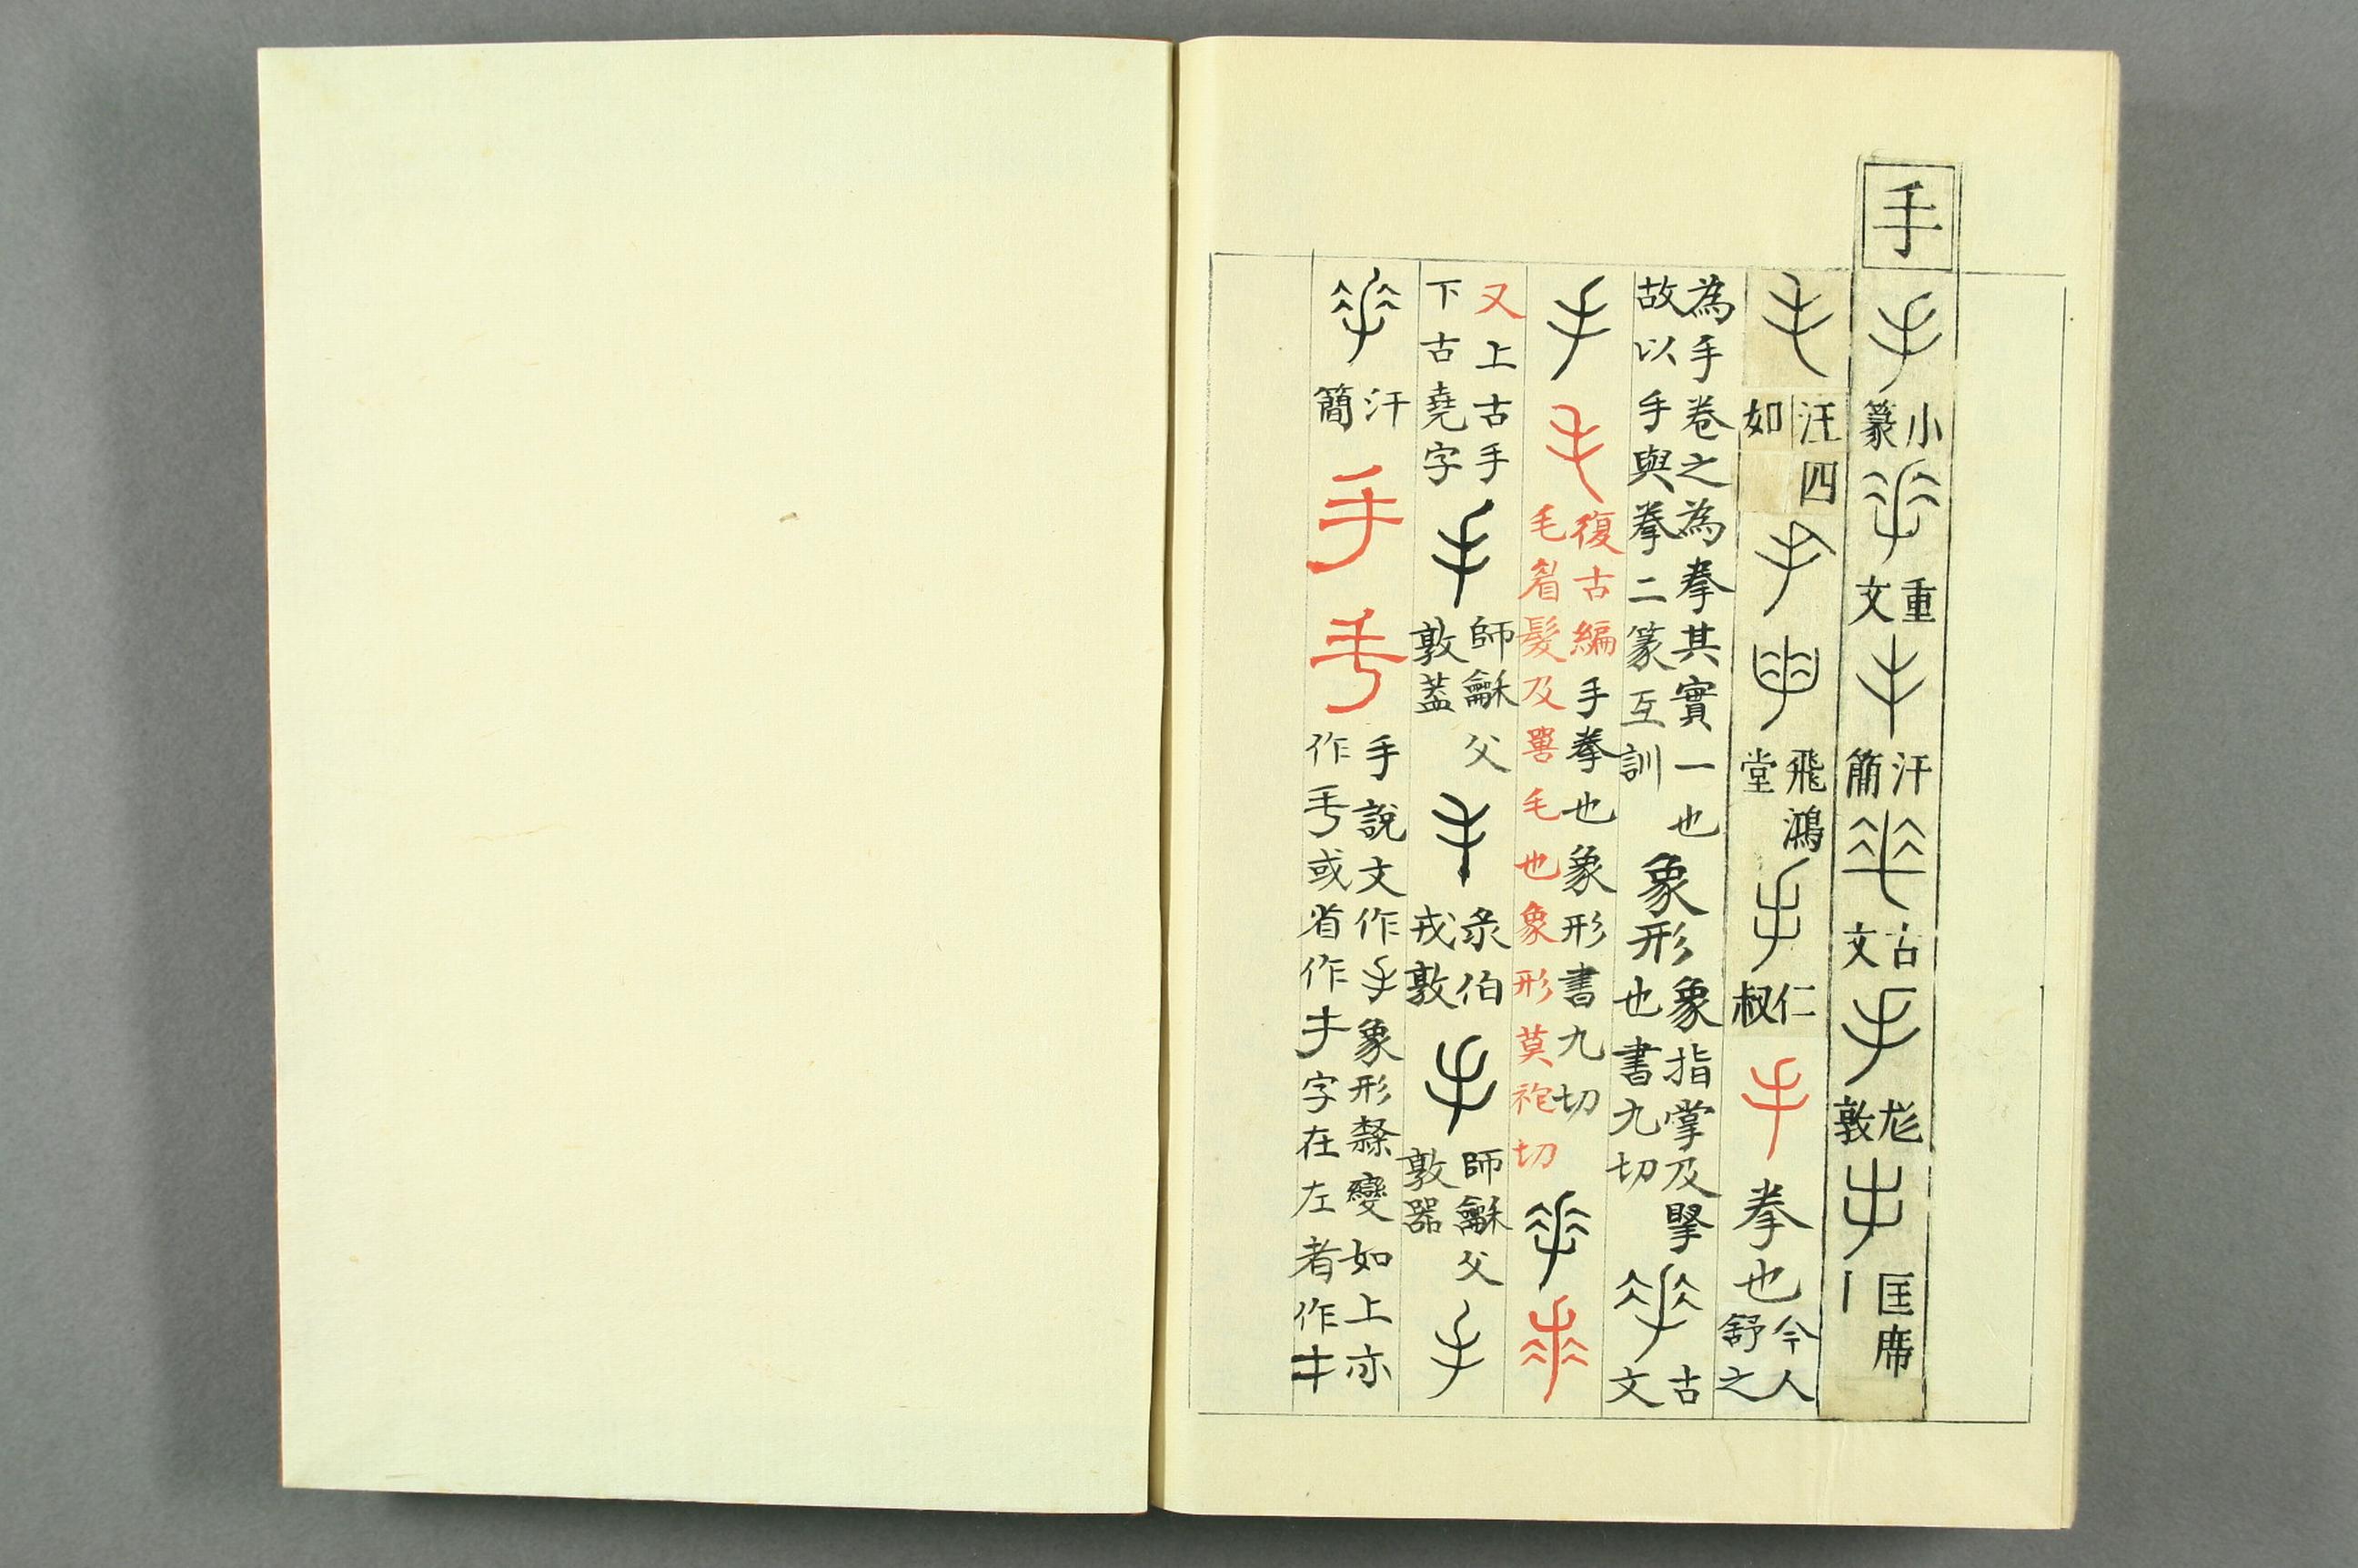 手
小篆 重文 汗簡 古文 尨敦 匡席
汪四如 飛鴻堂 仁叔 手 拳也 今人舒之
為手卷之為拳其實一也故以手與拳二篆互訓 象形 象指掌及掔也書九切 古文
手 毛 復古編 手拳也象形書九切 毛眉髮及獸毛也象形莫袍切
又 上古手下古堯字 師龢父敦蓋 彔伯戎敦 師龢父敦器
汗簡 手 手說文作手象形隸變如上亦作 或省作 字在左者作